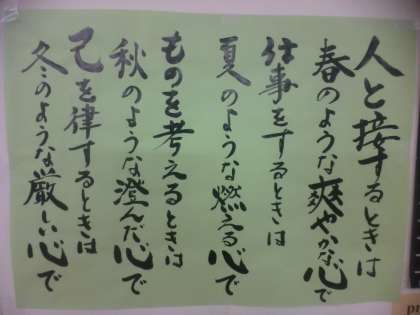 人と接するときは
春のような爽やかな心で
仕事をするときは
夏のような燃える心で
ものを考えるときは
秋のような澄んだ心で
己を律するときは
冬のような厳しい心で